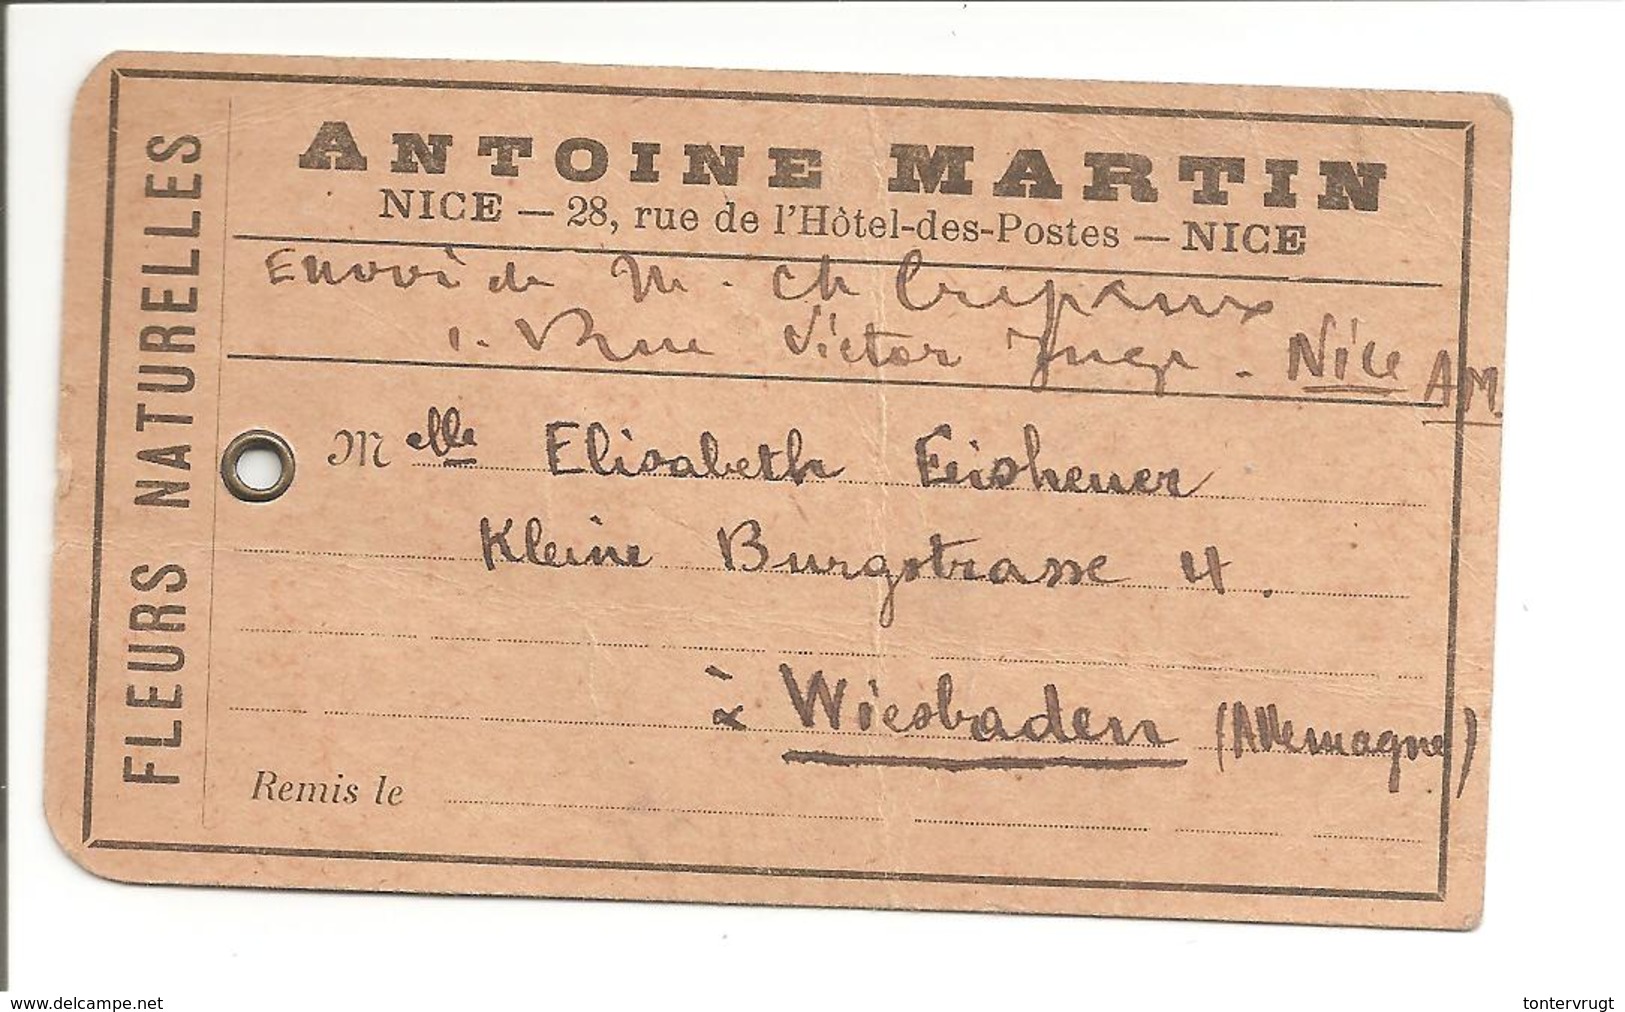 FLEURS NATURELLES
ANTOINE MARTIN
NICE — 28, rue de l'Hôtel-des-Postes — NICE
Envoi de M. Ch Crepaux
1. Rue Victor Juge - Nice A.M.
Melle Elisabeth Eisheuer
Kleine Burgstrasse 4.
à Wiesbaden (Allemagne)
Remis le
www.delcampe.net
tontervrugt